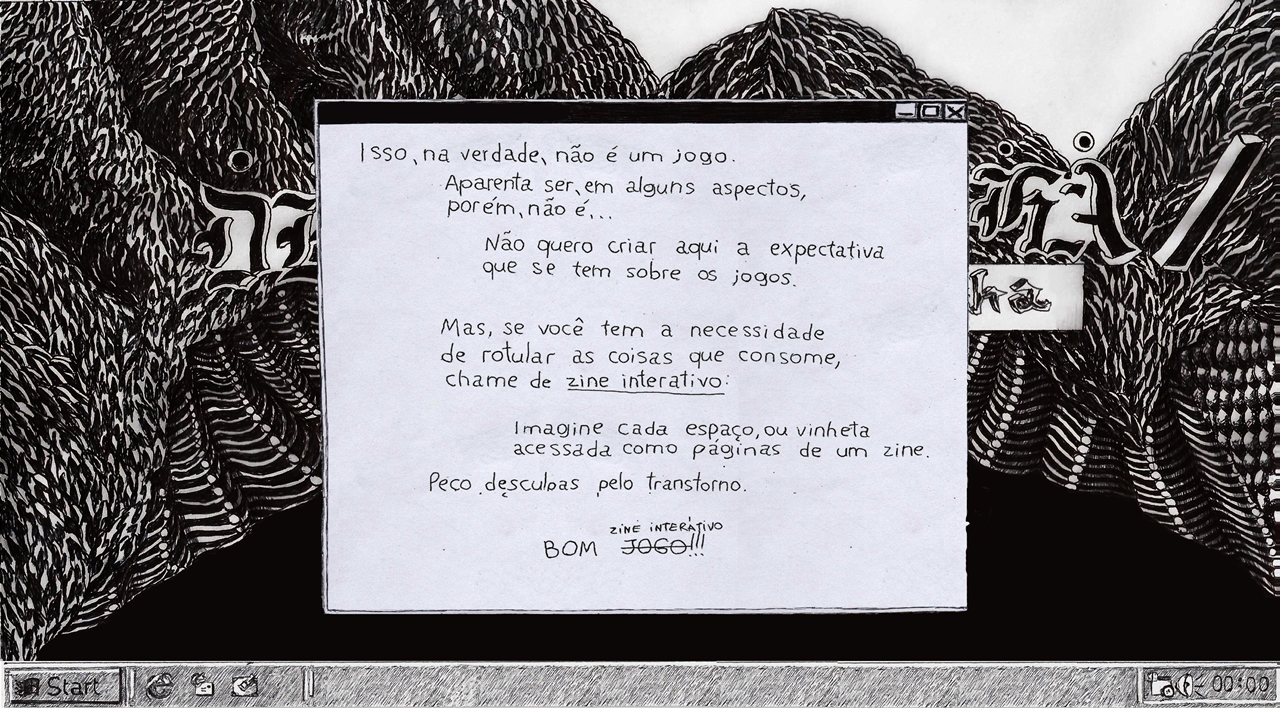 Isso, na verdade, não é um jogo.
Aparenta ser, em alguns aspectos,
porém, não é...
Não quero criar aqui a expectativa
que se tem sobre os jogos.
Mas, se você tem a necessidade
de rotular as coisas que consome,
chame de zine interativo:
Imagine cada espaço, ou vinheta
acessada como páginas de um zine.
Peço desculpas pelo transtorno.
ZINE INTERATIVO
BOM JOGO!!!
Start
00:00